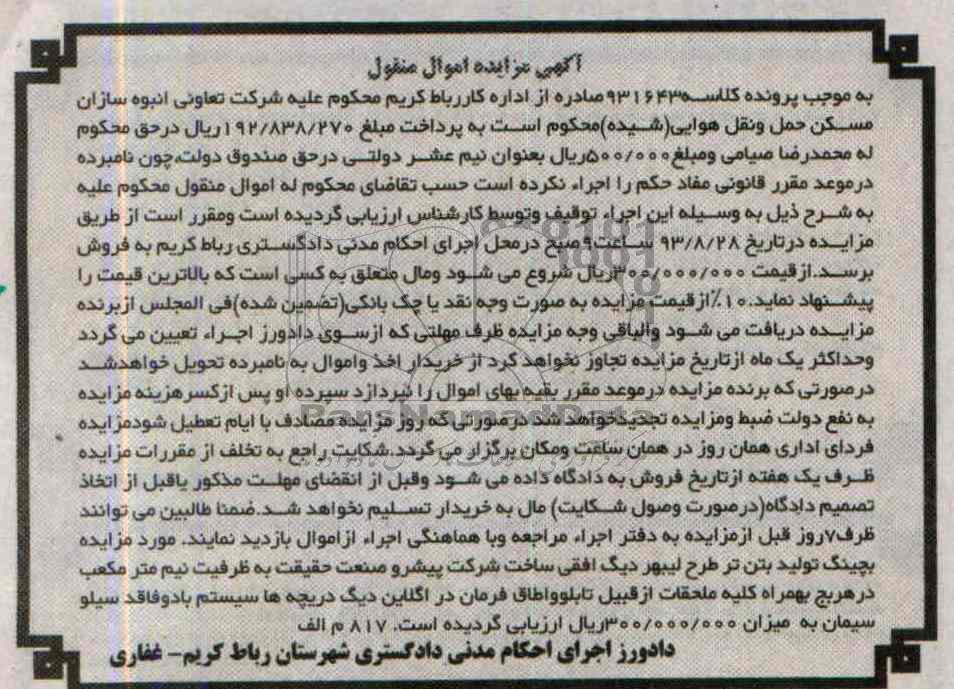 آگهی مزایده اموال منقول
به موجب پرونده کلاسه۹۳۱۶۴۳صادره از اداره کاررباط کریم محکوم علیه شرکت تعاونی انبوه سازان
مسکن حمل ونقل هوایی(شیده)محکوم است به پرداخت مبلغ ۱۹۲/۸۳۸/۲۷۰ریال درحق محکوم
له محمدرضا صیامی ومبلغ۵۰۰/۰۰۰ریال بعنوان نیم عشر دولتی درحق صندوق دولت،چون نامبرده
درموعد مقرر قانونی مفاد حکم را اجراء نکرده است حسب تقاضای محکوم له اموال منقول محکوم علیه
به شرح ذیل به وسیله این اجراء توقیف وتوسط کارشناس ارزیابی گردیده است ومقرر است از طریق
مزایده درتاریخ ۹۳/۸/۲۸ ساعت۹صبح درمحل اجرای احکام مدنی دادگستری رباط کریم به فروش
برسد.ازقیمت ۳۰۰/۰۰۰/۰۰۰ریال شروع می شود ومال متعلق به کسی است که بالاترین قیمت را
پیشنهاد نماید.۱۰٪ازقیمت مزایده به صورت وجه نقد یا چک بانکی(تضمین شده)فی المجلس ازبرنده
مزایده دریافت می شود والباقی وجه مزایده ظرف مهلتی که ازسوی دادورز اجراء تعیین می گردد
وحداکثر یک ماه ازتاریخ مزایده تجاوز نخواهد کرد از خریدار اخذ واموال به نامبرده تحویل خواهدشد
درصورتی که برنده مزایده درموعد مقرر بقیه بهای اموال را نپردازد سپرده او پس ازکسرهزینه مزایده
به نفع دولت ضبط ومزایده تجدیدخواهد شد درصورتی که روز مزایده مصادف با ایام تعطیل شودمزایده
فردای اداری همان روز در همان ساعت ومکان برگزار می گردد.شکایت راجع به تخلف از مقررات مزایده
ظرف یک هفته ازتاریخ فروش به دادگاه داده می شود وقبل از انقضای مهلت مذکور یاقبل از اتخاذ
تصمیم دادگاه(درصورت وصول شکایت) مال به خریدار تسلیم نخواهد شد.ضمنا طالبین می توانند
ظرف۷روز قبل ازمزایده به دفتر اجراء مراجعه وبا هماهنگی اجراء ازاموال بازدید نمایند. مورد مزایده
بچینگ تولید بتن تر طرح لیبهر دیگ افقی ساخت شرکت پیشرو صنعت حقیقت به ظرفیت نیم متر مکعب
درهربچ بهمراه کلیه ملحقات ازقبیل تابلوواطاق فرمان در اگلاین دیگ دریچه ها سیستم بادوفاقد سیلو
سیمان به میزان ۳۰۰/۰۰۰/۰۰۰ریال ارزیابی گردیده است. ۸۱۷ م الف
دادورز اجرای احکام مدنی دادگستری شهرستان رباط کریم- غفاری
ParsNamadData